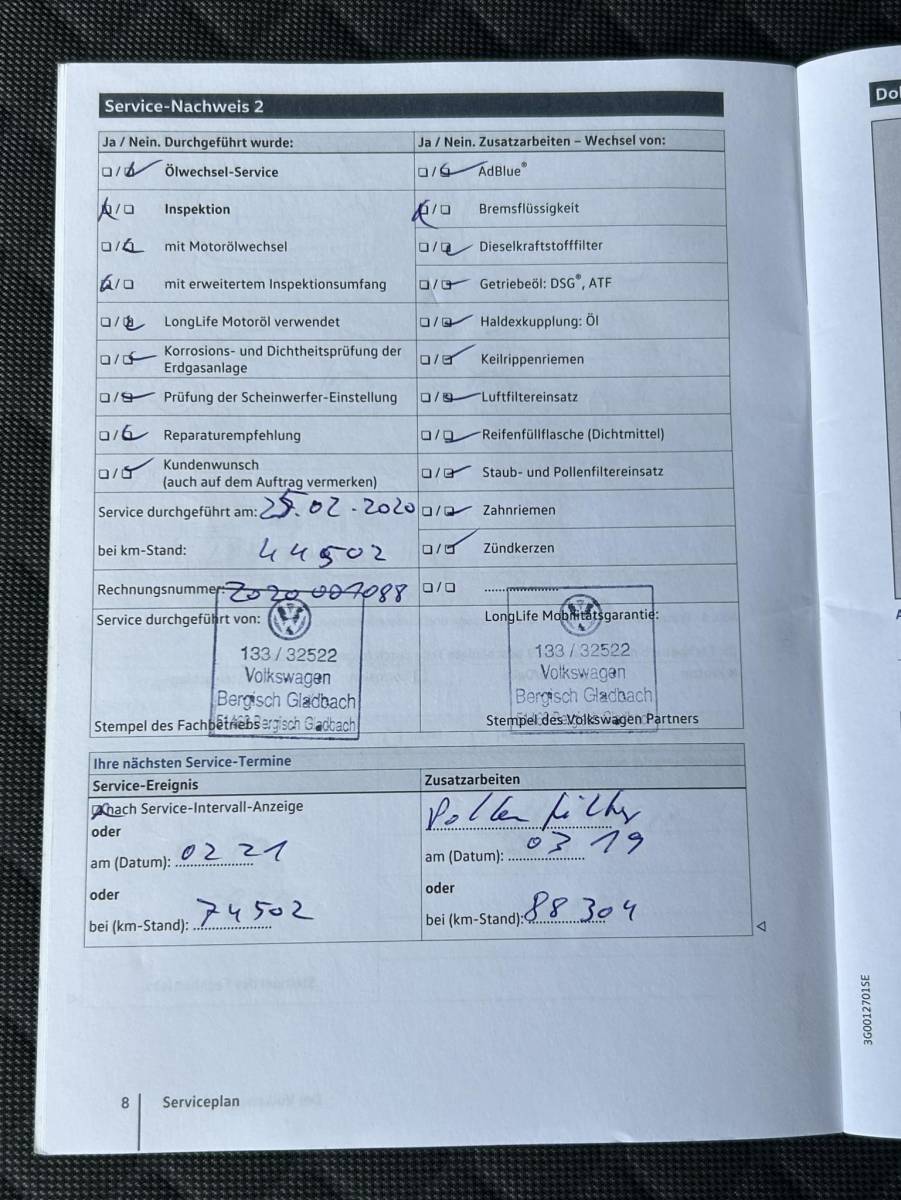 Service-Nachweis 2
Do
Ja / Nein. Durchgeführt wurde:
Ja / Nein. Zusatzarbeiten – Wechsel von:
Ölwechsel-Service
AdBlue®
Inspektion
Bremsflüssigkeit
mit Motorölwechsel
Dieselkraftstofffilter
mit erweitertem Inspektionsumfang
Getriebeöl: DSG®, ATF
LongLife Motoröl verwendet
Haldexkupplung: Öl
Korrosions- und Dichtheitsprüfung der
Erdgasanlage
Keilrippenriemen
Prüfung der Scheinwerfer-Einstellung
Luftfiltereinsatz
Reparaturempfehlung
Reifenfüllflasche (Dichtmittel)
Kundenwunsch
(auch auf dem Auftrag vermerken)
Staub- und Pollenfiltereinsatz
Service durchgeführt am: 25.02.2020
Zahnriemen
bei km-Stand: 44502
Zündkerzen
Rechnungsnummer:
Service durchgeführt von:
LongLife Mobilitätsgarantie:
133 / 32522
Volkswagen
Bergisch Gladbach
Bergisch Gladbach
Stempel des Fachbetriebs
133 / 32522
Volkswagen
Bergisch Gladbach
Stempel des Volkswagen Partners
Ihre nächsten Service-Termine
Service-Ereignis
Zusatzarbeiten
nach Service-Intervall-Anzeige
Pollenfilter
oder
am (Datum): 02 21
am (Datum): 03 19
oder
oder
bei (km-Stand): 74502
bei (km-Stand): 88304
3G0012701SE
8
Serviceplan